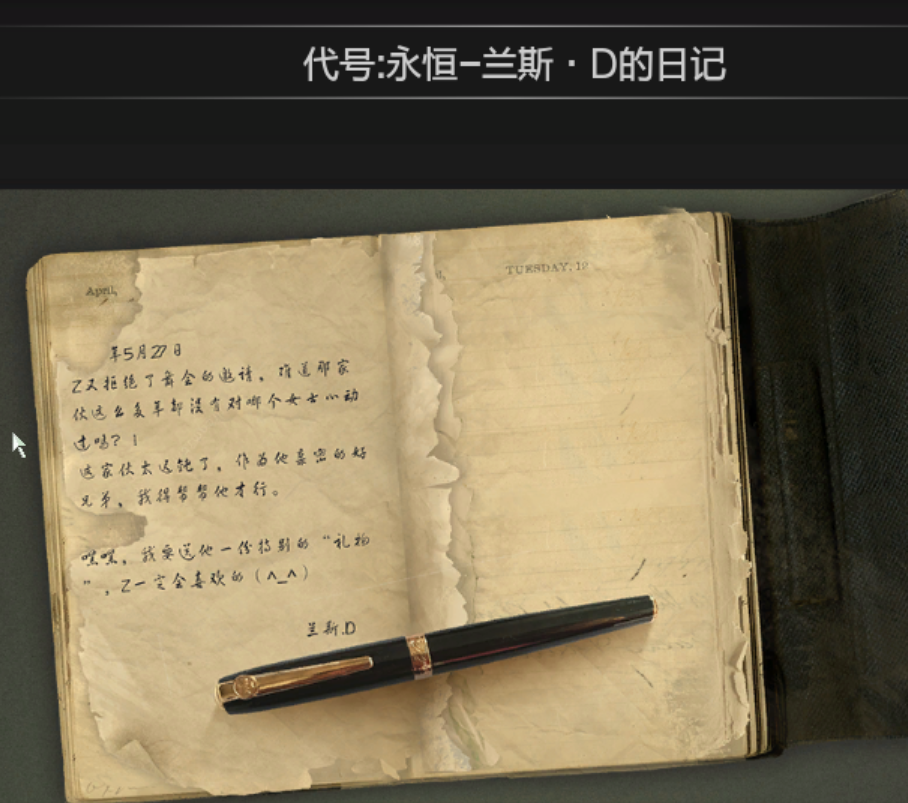 代号:永恒-兰斯·D的日记
April,
TUESDAY, 19
年5月27日
Z又拒绝了舞会的邀请，难道那家
伙这么多年都没有对哪个女士心动
过吗？！
这家伙太迟钝了，作为他亲密的好
兄弟，我得帮帮他才行。
嘿嘿，我要送他一份特别的“礼物
”，Z一定会喜欢的（^_^）
兰斯.D